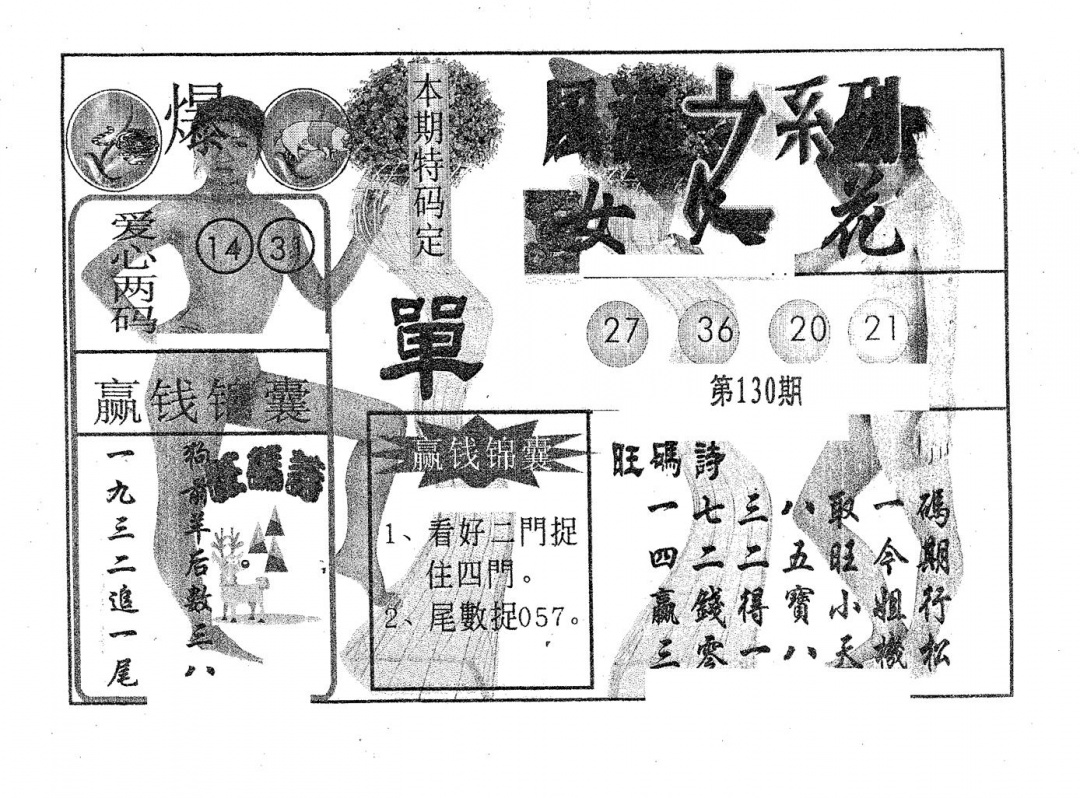 爆
本期特码定
單
爱心两码
14 31
赢钱锦囊
旺碼詩
狗前羊后數三八
一九三二追一尾
赢钱锦囊
1、看好二門捉
住四門。
2、尾數捉057。
之系列
女 花
27 36 20 21
第130期
旺碼詩
一七三八取一碼
四二二五旺今期
赢錢得寶小姐行
三零一八天機松